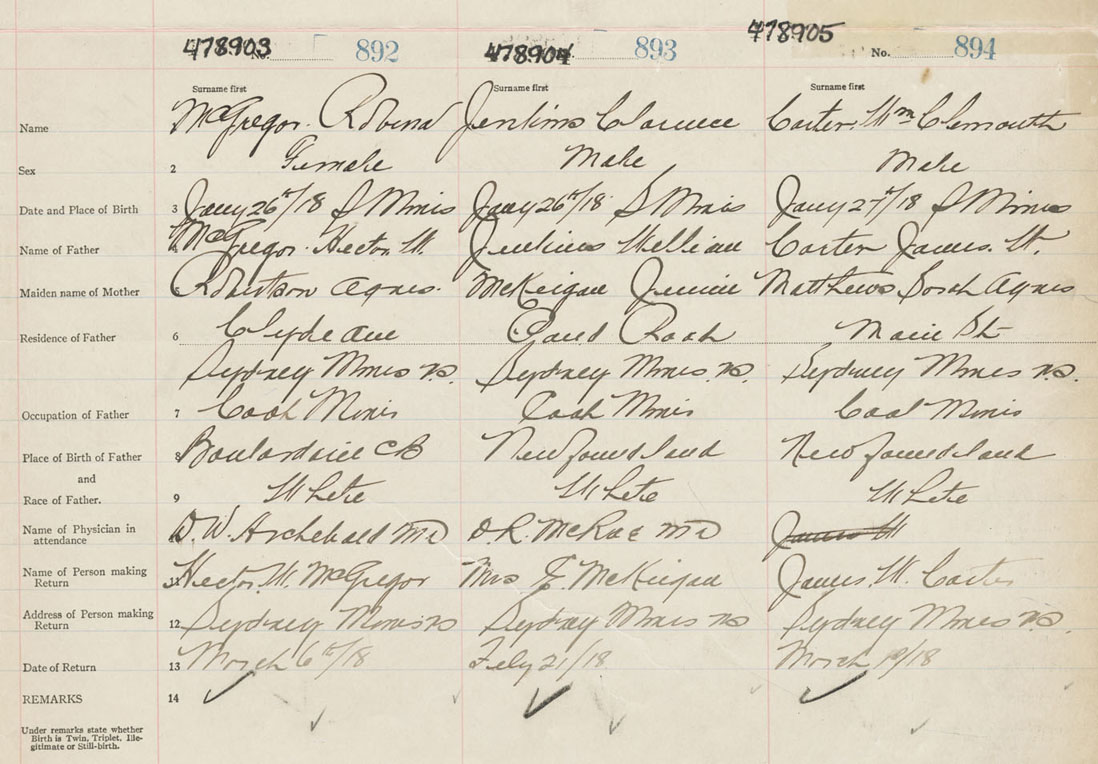 478903 478904 478905
No. 892 893 No. 894
Surname first Surname first Surname first
Name McGregor. Robena Jenkins Clarence Carter. Wm
Sex 2 Female Male Male
Date and Place of Birth 3 Jany 26th/18 S Mines Jany 26th/18 S Mines Jany 27th/18 S Mines
Name of Father 4 McGregor. Hector. W. Jenkins William Carter James. W.
Maiden name of Mother 5 Robertson Agnes. McKeigan Jennie Matthews Sarah Agnes
Residence of Father 6 Clyde Ave Pond Road Main St
Sydney Mines N.S. Sydney Mines. N.S. Sydney Mines N.S.
Occupation of Father 7 Coal Mines Coal Mines Coal Mines
Place of Birth of Father 8 Boulardarie CB Newfoundland Newfoundland
and
Race of Father. 9 White White White
Name of Physician in D. W. Archebald MD D R. McRae MD
attendance
Name of Person making 11 Hector. W. McGregor Mrs McKeigan James. W. Carter
Return
Address of Person making 12 Sydney Mines NS Sydney Mines NS Sydney Mines N.S.
Return
Date of Return 13 March 6th/18 Feby 21/18 March 19/18
REMARKS 14
Under remarks state whether
Birth is Twin, Triplet, Ille-
gitimate or Still-birth.